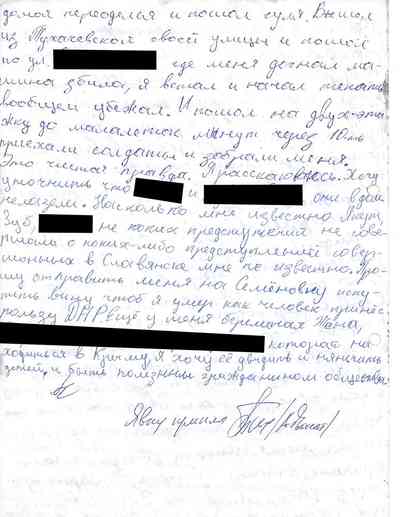 домой переоделся и пошол гулят. Вышол
из Тухачевской своей улицы и пошол
по ул. где меня догнал ма-
шина збила, я встал и начал
вообщем убежал. И пошол на двух эта
жку до малалеток минут через 10-ть
приехали солдаты и забрали меня.
Это чистая правда. Я рассказываюсь. Хочу
уточнить что и они в дом
не лазели. Насколько мне известно
Зуб, не каких преступлений не сове-
ршали о каких-либо преступлений совер-
шонных в Славянске мне не известно. Про-
шу отправить меня на Семёновку иску-
пить вину чтоб я умер как человек принёс
пользу ДНР. Ещё у меня беременая Жена,
которая на-
ходиться в Крыму я хочу её увидить и нянчить
детей, и быть полезным гражданином общества.
Явку принял